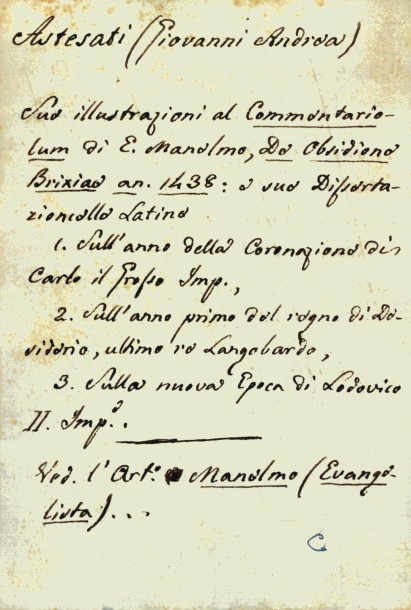 Astesati (Giovanni Andrea)
Sue illustrazioni al Commentario-
lum di E. Manelmo, De Obsidione
Brixiae an. 1438: e sue Disserta-
zioncelle Latine
1. Sull'anno della Coronazione di
Carlo il Grosso Imp.,
2. Sull'anno primo del regno di De-
siderio, ultimo re Langobardo,
3. Sulla nuova Epoca di Lodovico
II. Imp.e.
Ved. l'Art.o Manelmo (Evange-
lista)...
C